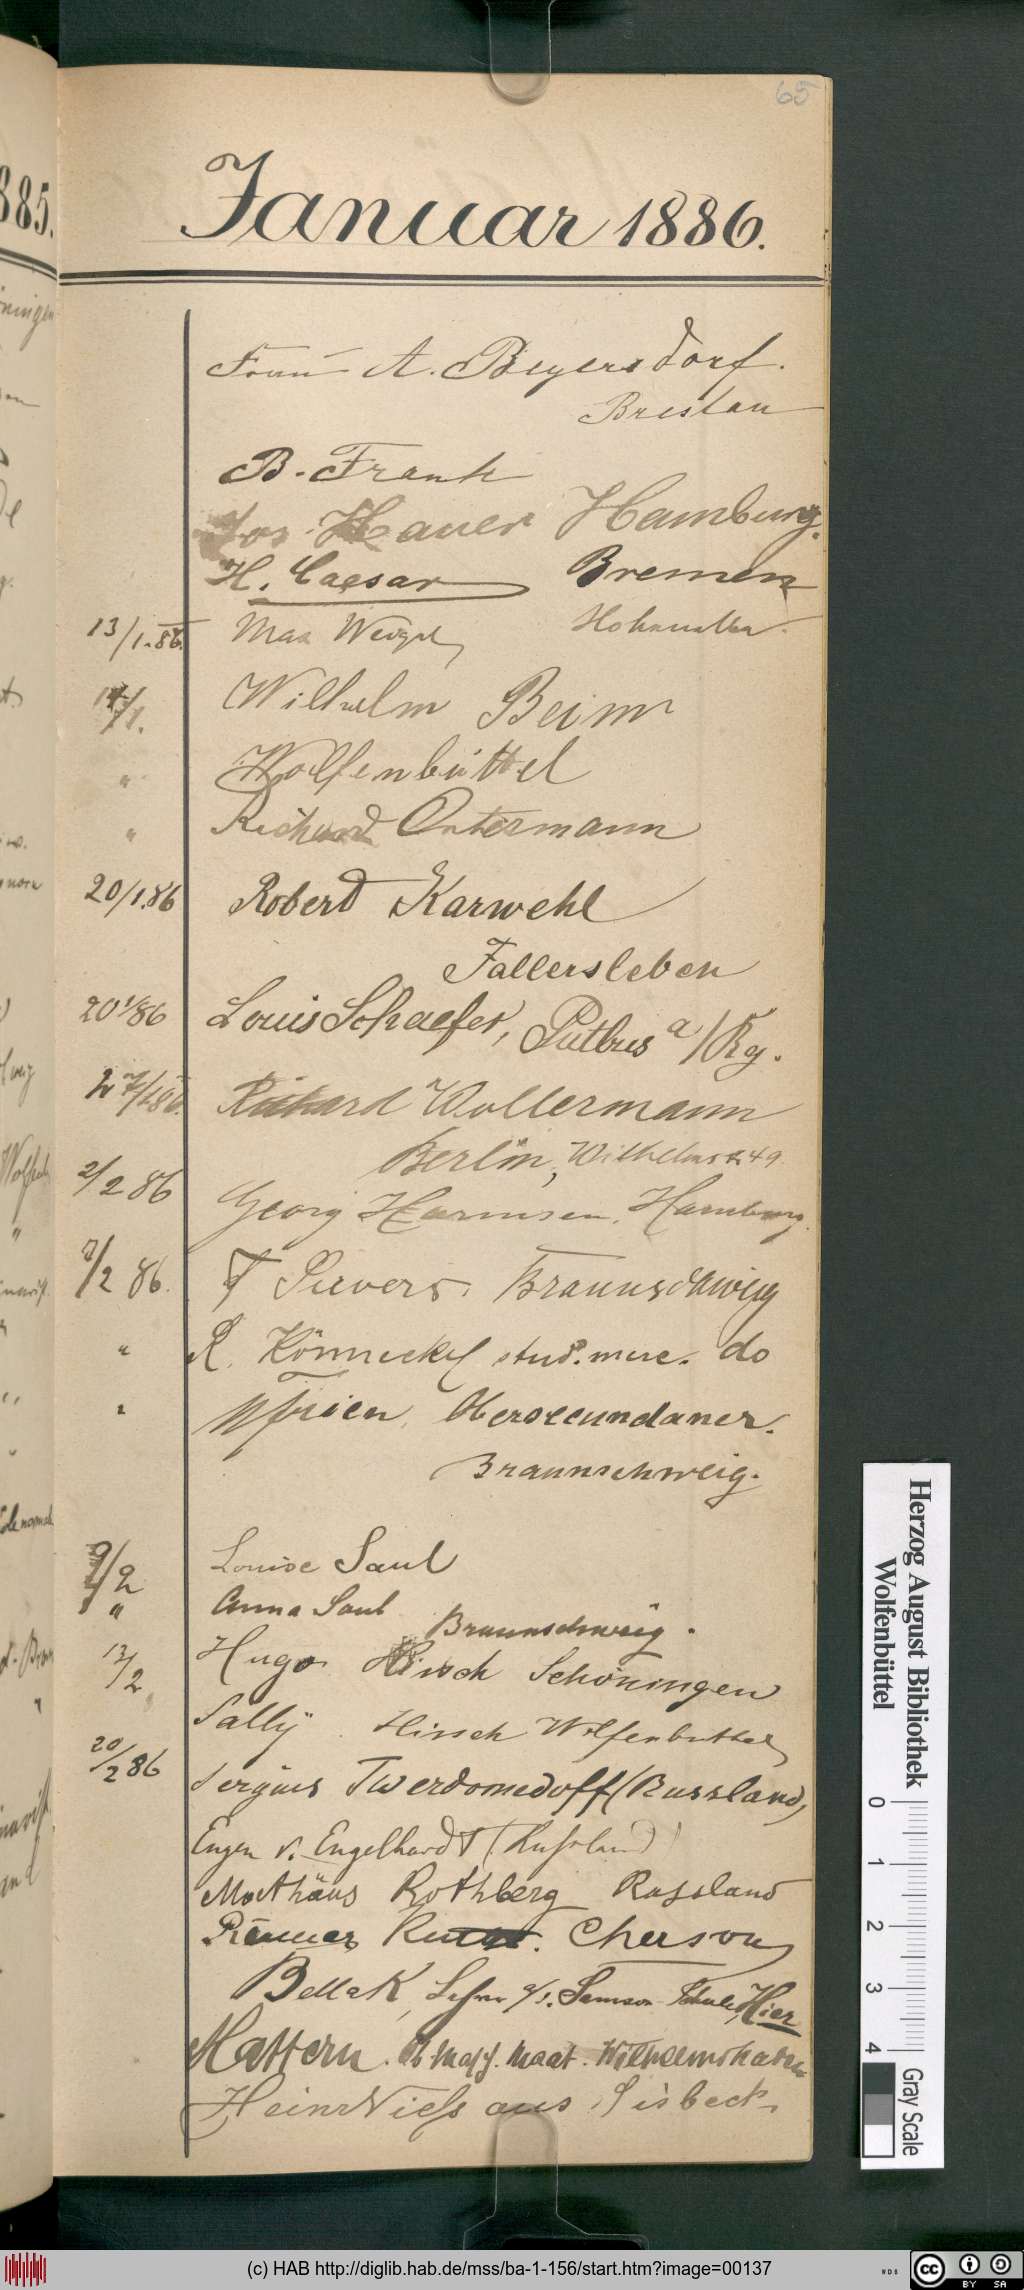 65
885.
Januar 1886.
Frau A. Beyersdorf.
Breslau
B. Frank
Jos Hauer Hamburg.
H. Caesar Bremen
13/1.86. Max Weigel
14/1. Wilhelm Beim
" Wolfenbüttel
" Richard Ostermann
20/1.86 Robert Karwehl
Fallersleben
20 1/86 Louis Schaefer, Putbus a/Rg.
27/1 86. Richard Wollermann
Berlin, Wilhelmstr. 49
2/2 86 Georg Harmsen. Hamburg.
7/2 86. F Sievers. Braunschweig
" R. Könnecke stud. merc. do
" Obersecundaner.
Braunschweig.
9/2 Louise Saul
" Anna Saul Braunschweig.
13/2 Hugo Hirsch Schöningen
Sally Hirsch Wolfenbüttel
20/2 86 Sergius Twerdomedoff (Russland,
Eugen v. Engelhardt (Russland)
Mathäus Rothberg Russland
Cherson
Bellak, Lehrer a/d. Samson Schule, Hier
Mattern. Ob. Masch. Maat. Wilhelmshaven
Hein Niess aus Sisbeck
Herzog August Bibliothek
Wolfenbüttel
0 1 2 3 4
Gray Scale
(c) HAB http://diglib.hab.de/mss/ba-1-156/start.htm?image=00137
cc BY SA